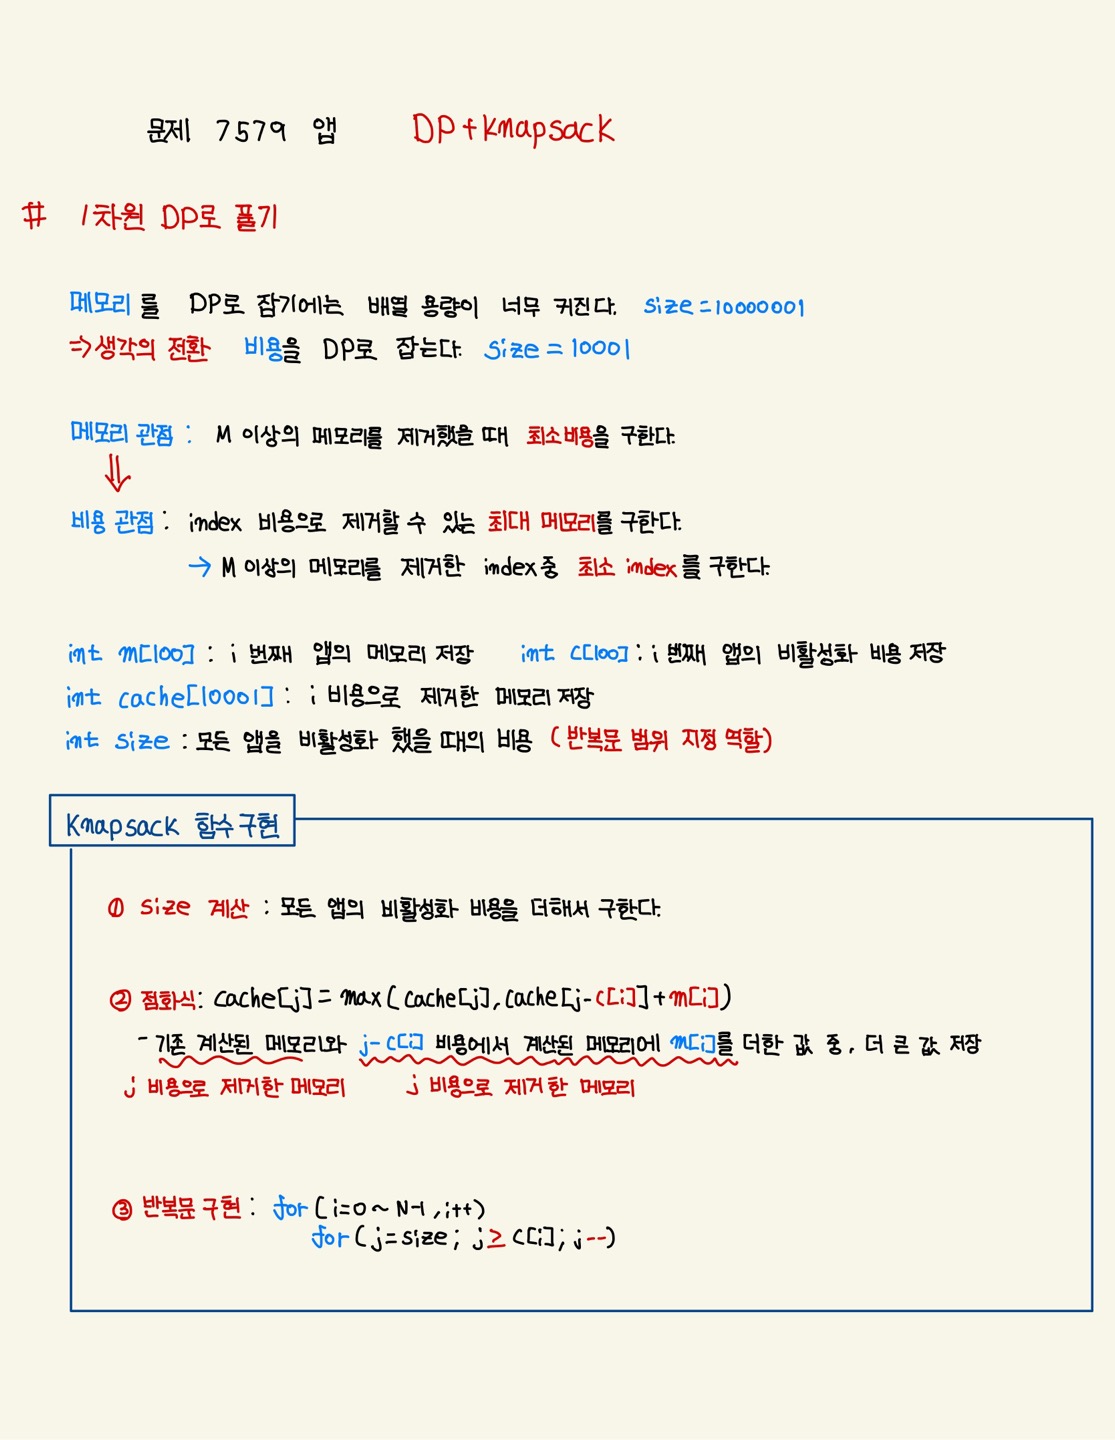 문제 7579 앱 DP+knapsack
# 1차원 DP로 풀기
메모리를 DP로 잡기에는 배열 용량이 너무 커진다. size=10000001
=> 생각의 전환 비용을 DP로 잡는다. size=10001
메모리 관점 : M 이상의 메모리를 제거했을 때 최소비용을 구한다.
⇓
비용 관점 : index 비용으로 제거할 수 있는 최대 메모리를 구한다.
→ M 이상의 메모리를 제거한 index중 최소 index를 구한다.
int m[100] : i 번째 앱의 메모리 저장 int c[100] : i 번째 앱의 비활성화 비용 저장
int cache[10001] : i 비용으로 제거한 메모리 저장
int size : 모든 앱을 비활성화 했을 때의 비용 (반복문 범위 지정 역할)
Knapsack 함수구현
① size 계산 : 모든 앱의 비활성화 비용을 더해서 구한다.
② 점화식 : cache[j] = max(cache[j], cache[j-c[i]]+m[i])
- 기존 계산된 메모리와 j-c[i] 비용에서 계산된 메모리에 m[i]를 더한 값 중, 더 큰 값 저장
j 비용으로 제거한 메모리 j 비용으로 제거한 메모리
③ 반복문 구현 : for (i=0 ~ N-1, i++)
for (j=size; j≥c[i]; j--)